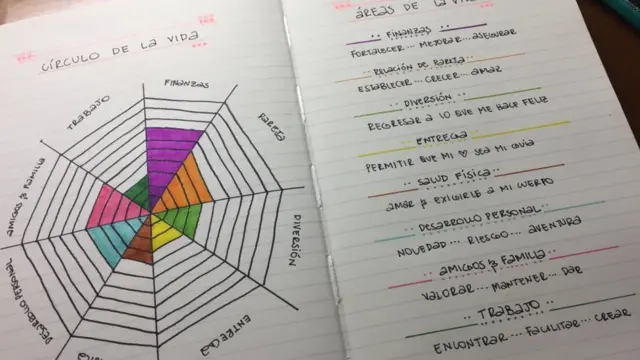 CÍRCULO DE LA VIDA
FINANZAS
PAREJA
DIVERSIÓN
ENTREGA
DESARROLLO PERSONAL
AMIGOS & FAMILIA
TRABAJO
ÁREAS DE LA
FINANZAS
FORTALECER... MEJORAR... ASEGURAR
RELACIÓN DE PAREJA
ESTABLECER... CRECER... AMAR
DIVERSIÓN
REGRESAR A LO QUE ME HACE FELIZ
ENTREGA
PERMITIR QUE MI ♡ SEA MI GUÍA
SALUD FÍSICA
AMAR & EXIGIRLE A MI CUERPO
DESARROLLO PERSONAL
NOVEDAD... RIESGO... AVENTURA
AMIGOS & FAMILIA
VALORAR... MANTENER... DAR
TRABAJO
ENCONTRAR... FACILITAR... CREAR